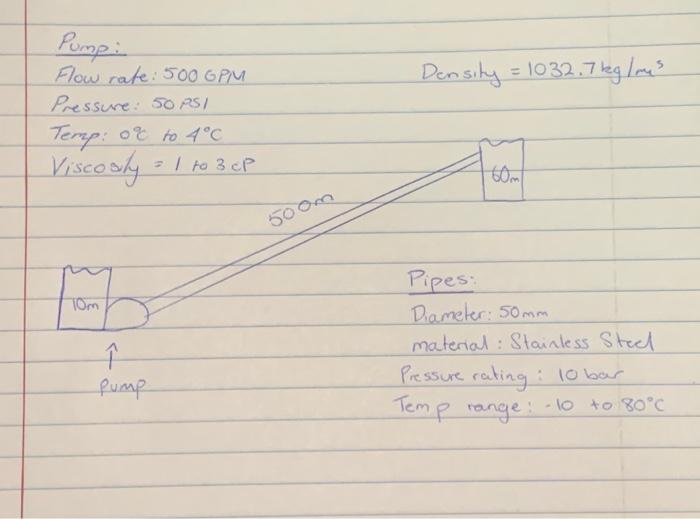 Pump:
Flow rate: 500 GPM
Pressure: 50 PSI
Temp: 0°C to 4°C
Viscosity = 1 to 3 cP
Density = 1032.7 kg/m³
60m
500m
10m
Pump
Pipes:
Diameter: 50mm
material: Stainless Steel
Pressure rating: 10 bar
Temp range: -10 to 80°C